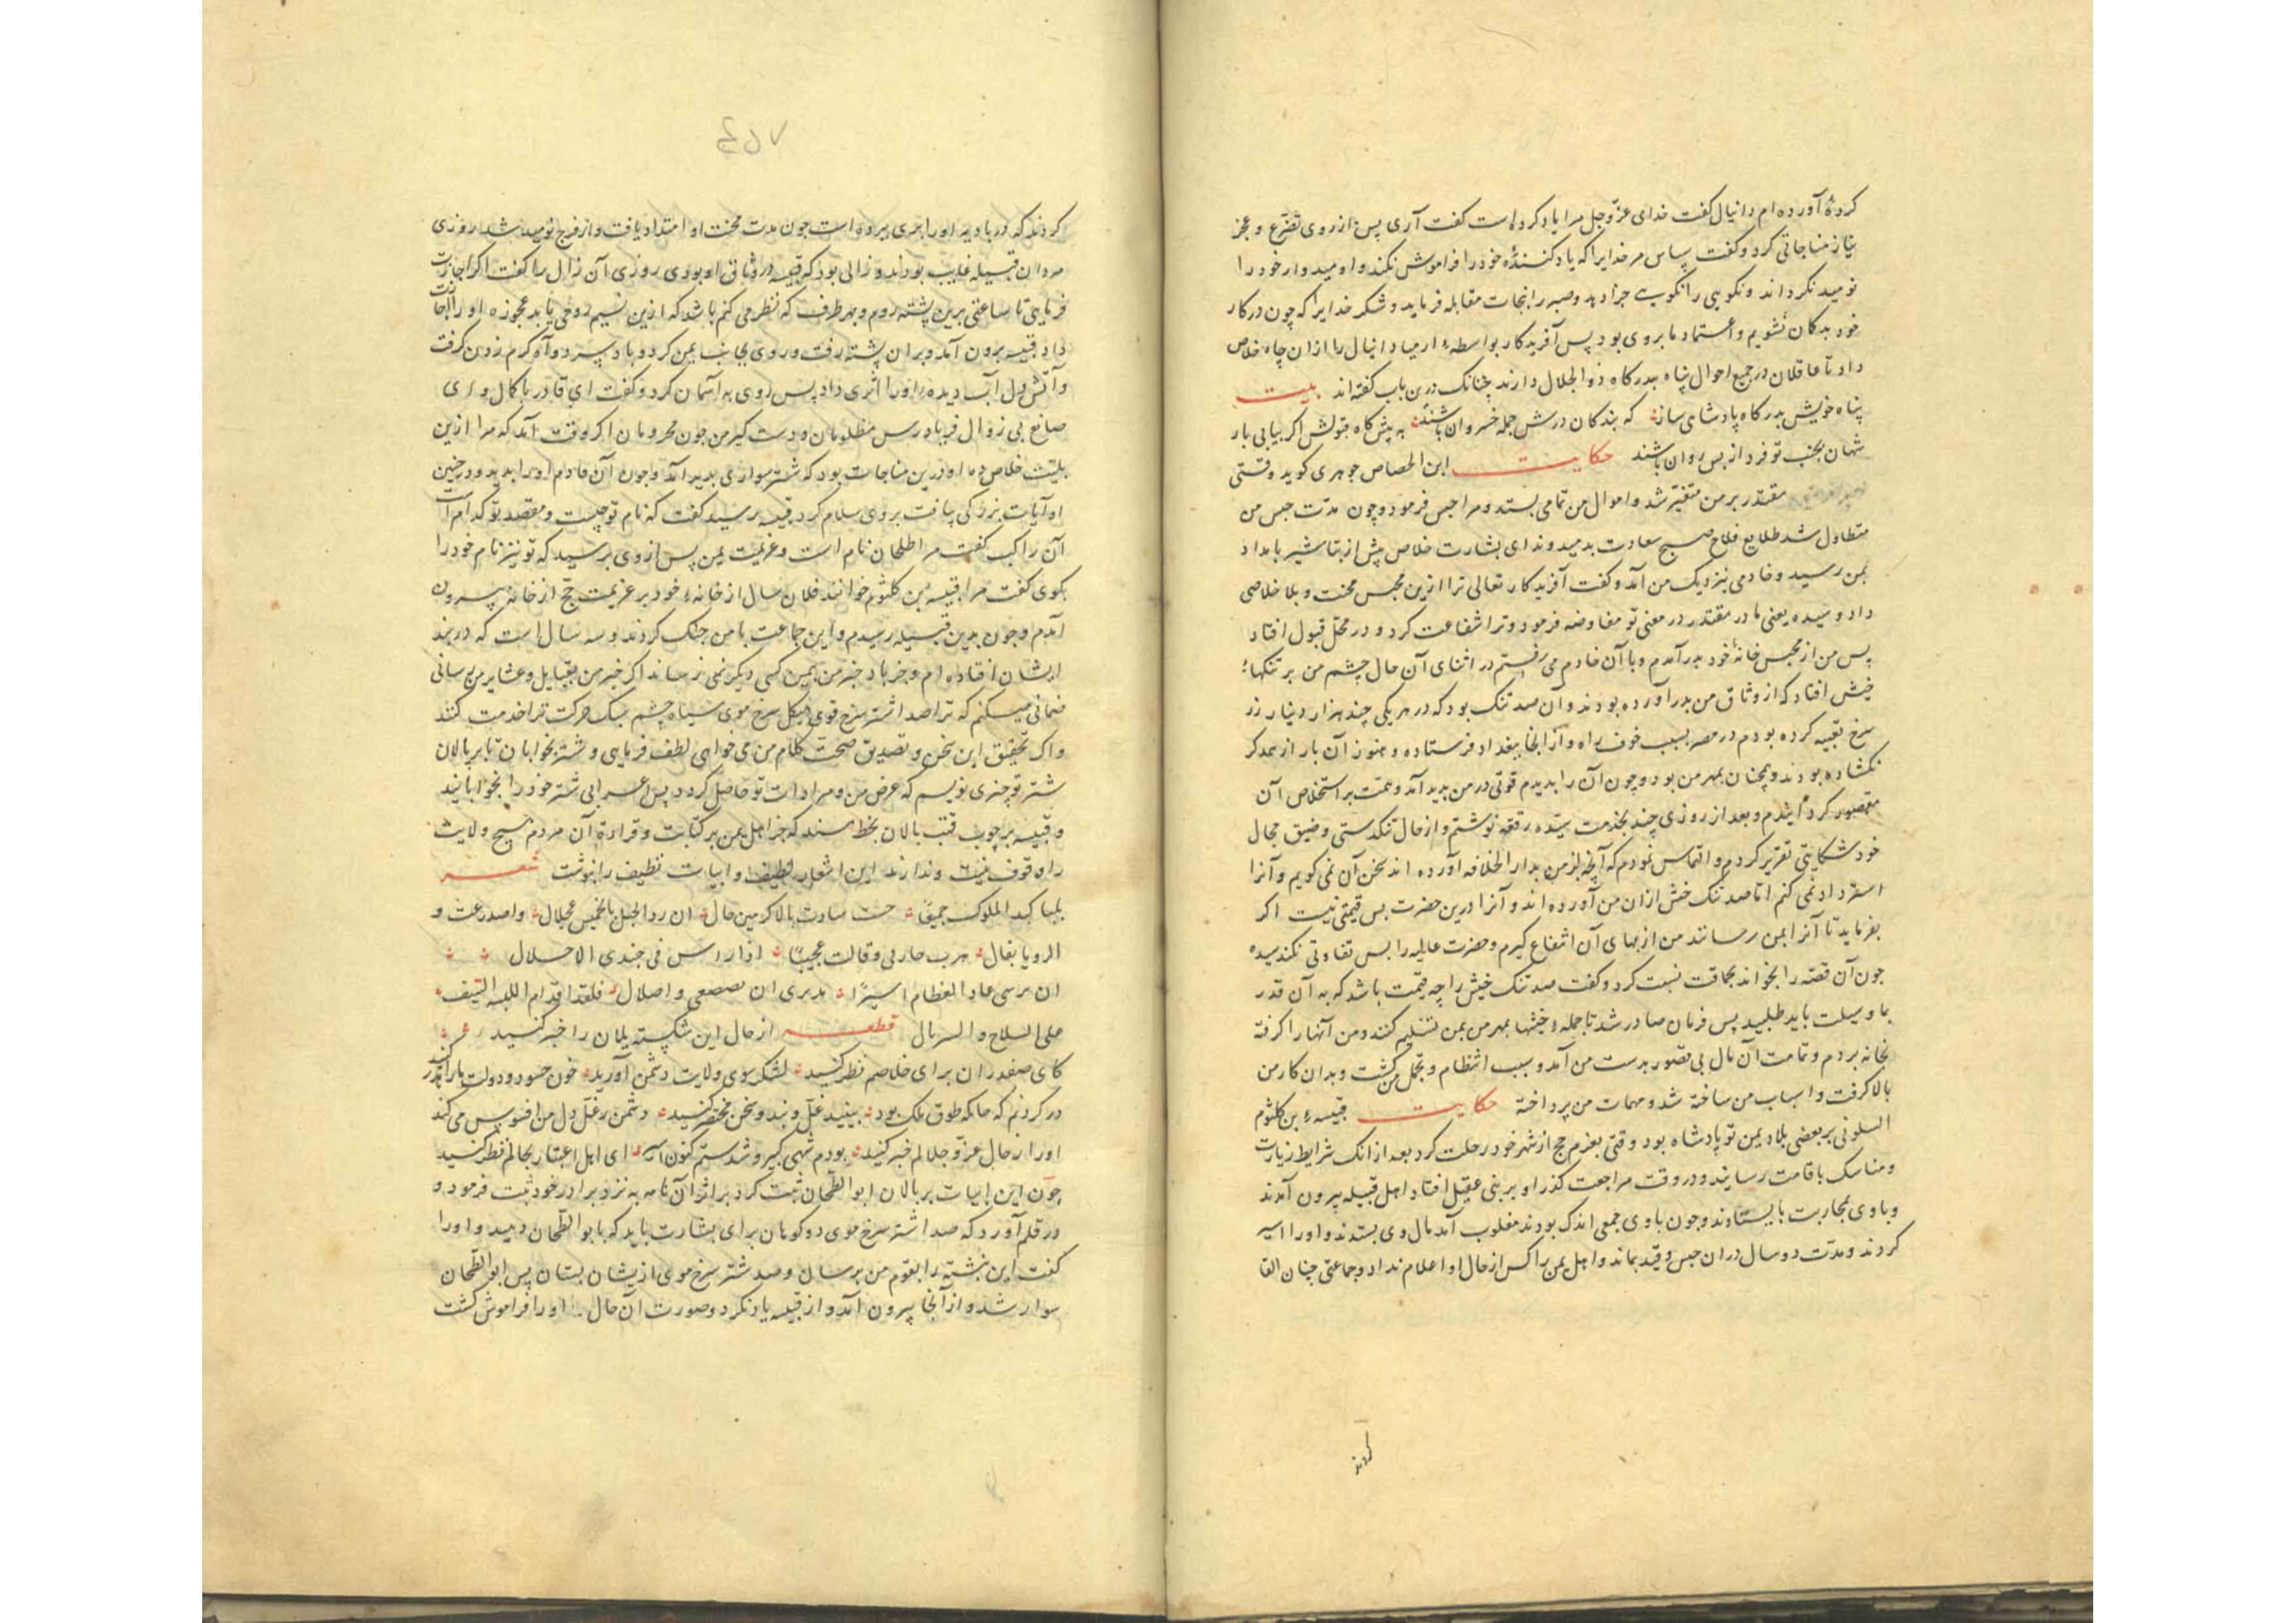 کردهٔ آورده‌ام دانیال کفت خدای عزّ و جل مرا یاد کرده است کفت آری پس از روی تضرّع و عجز
نیاز مناجاتی کرد و کفت سپاس مر خدایرا که یاد کنندهٔ خود را فراموش نکند و اومیدوار خود را
نومید نکرداند و نکویی را نکویی جزا دهد و صبر را بنجات مقابله فرماید و شکر خدایرا که چون در کار
خود بدکان شویم و اعتماد ما بروی بود پس آفریدکار بواسطهٔ ارمیا دانیال را ازان چاه خلاص
داد تا عاقلان در جمیع احوال پناه بدرکاه ذو الجلال دارند چنانک درین باب کفته‌اند بیت
پناه خویش بدرکاه پادشای ساز که بندکان درش جمله خسروان باشند به پیش کاه قبولش اکر بیابی بار
شهان بجنب تو فردا ز پس روان باشند حکایت ابن الحصاص جوهری کوید وقتی
مقتدر بر من متغیّر شد و اموال من تمامی بستد و مرا حبس فرمود و چون مدّت حبس من
متطاول شد طلایع فلاح صبح سعادت بدمید و ندای بشارت خلاص پیش از تباشیر بامداد
بمن رسید و خادمی بنزدیک من آمد و کفت آفریدکار تعالی ترا ازین محبس محنت و بلا خلاصی
داد و سیده یعنی مادر مقتدر در معنی تو مفاوضه فرمود و ترا شفاعت کرد و در محلّ قبول افتاد
پس من از محبس خانهٔ خود بدر آمدم و با آن خادم می رفتم در اثنای آن حال چشم من بر تنکهاء
خیش افتاد که از وثاق من بدر آورده بودند و آن صد تنک بود که در هر یکی چند هزار دینار زر
سرخ تعبیه کرده بودم در مصر بسبب خوف راه و از آنجا ببغداد فرستاده و هنوز آن بار از همدکر
نکشاده بودند و همچنان بمهر من بود و چون آن را بدیدم قوتی در من پدید آمد و همّت بر استخلاص آن
مقصور کردانیدم و بعد از روزی چند بخدمت سیّده رقعه نوشتم و از حال تنکدستی و ضیق مجال
خود شکایتی تقریر کردم و التماس نمودم که آنچه از من بدار الخلافه آورده‌اند سخن آن نمی کویم و آنرا
استرداد نمی کنم امّا صد تنک خیش ازان من آورده‌اند و آنرا درین حضرت بس قیمتی نیست اکر
بفرماید تا آنرا بمن رسانند من از بهای آن انتفاع کیرم و حضرت عالیه را بس تفاوتی نکند سیده
چون آن قصّه را بخواند بحماقت نسبت کرد و کفت صد تنک خیش را چه قیمت باشد که به آن قدر
بما وسیلت باید طلبید پس فرمان صادر شد تا جملهٔ خیشها بمهر من بمن تسلیم کنند و من آنها را کرفته
بخانه بردم و تمامت آن مال بی قصور بدست من آمد و سبب انتظام و تجمّل من کشت و بدان کار من
بالا کرفت و اسباب من ساخته شد و مهمات من پرداخته حکایت قیسهٔ بن کلثوم
السلونی بر بعضی بلاد یمن تو پادشاه بود وقتی بعزم حج از شهر خود رحلت کرد بعد از انک شرایط زیارت
و مناسک باقامت رسانید و در وقت مراجعت کذر او بر بنی عقیل افتاد اهل قبیله بیرون آمدند
و با وی بمحاربت بایستادند و چون با وی جمعی اندک بودند مغلوب آمد مال وی بستدند و او را اسیر
کردند و مدّت دو سال دران حبس و قید بماند و اهل یمن را کس از حال او اعلام نداد و جماعتی چنان القا
کردند
۷
کردند که در بادیه او را پری برده است چون مدت محنت او امتداد یافت و از فرج نومید شد روزی
مردان قبیله غایب بودند و زالی بود که قیسه در وثاق او بودی روزی آن زال را کفت اکر اجازت
فرمایی تا ساعتی برین پشته روم و بهر طرف که نظر می کنم باشد که ازین نسیم روحی یابد عجوزه او را اجازت
داد قیسه برون آمد و بران پشته رفت و روی بجانب یمن کرد و باد سرد و آه کرم زدن کرفت
و آتش دل آب دیده را و را اثری داد پس روی به آسمان کرد و کفت ای قادر با کمال و ای
صانع بی زوال فریاد رس مظلومان و دست کیر من چون محرومان اکر وقت آمد که مرا ازین
بلیّت خلاص ده او درین مناجات بود که شتر سواری پدید آمد و چون آن خادم او را بدید و در جبین
او آیات بزرکی یافت بروی سلام کرد قیسه پرسید کفت که نام تو چیست و مقصد تو کدام است
آن راکب کفت مرا طلحان نام است و عزیمت یمن پس از وی پرسید که تو نیز نام خود را
بکوی کفت مرا قیسه بن کلثوم خوانند فلان سال از خانهٔ خود بر عزیمت حج از خانه بیرون
آمدم و چون بدین قبیله رسیدم و این جماعت با من جنک کردند و سه سال است که در بند
ایشان افتاده‌ام و جز باد خبر من بیمن کسی دیکر نمی رساند اکر خبر من بقبایل و عشایر من رسانی
ضمانی میکنم که ترا صد اشتر سرخ قوی هیکل سرخ موی سیاه چشم سبک حرکت ترا خدمت کنند
و اکر تحقیق این سخن و تصدیق صحّت کلام من می خواهی لطف فرمایی و شتر بخوابان تا بر پالان
شتر تو چیزی نویسم که غرض من و مرادات تو حاصل کردد پس اعرابی شتر خود را بخوابانید
و قیسه بر چوب قتب پالان بخط مسند که جز اهل یمن بر کتابت و قراءة آن مردم هیچ ولایت
را وقوف نیست و ندارند این اشعار لطیف و ابیات نظیف را نوشت شعر
جمیعًا حیث سارت بالاکرمین حال ان رد الجبل بالخمیس عجلال و اصدرعت و
الرویا بغال هرب جارتی و قالت عجیبًا اذا راس فی جندی الاحلال
ان برسی عاد العظام اسیرًا بدبری ان تضعصعی و اصلال فلقد اقدام اللبه السّیف
علی السلاح و السربال قطعه از حال این شکسته یلمان را خبر کنید
کای صفدران برای خلاصم نظر کنید لشکر سوی ولایت دشمن آورید خون حسود و دولت ما
در کردنم که جامکه طوق ملک بود ببینید غلّ و بند و سخن مختصر کنید دشمن ز غلّ دل من افسوس می کند
او را ز حال عزّ و جلالم خبر کنید بودم شهی کبیر و شدستم کنون اسیر ای اهل اعتبار بحالم نظر کنید
چون این ابیات بر پالان ابو الطّحان ثبت کرد بر اثر آن نامه به نزد برادر خود ثبت فرمود و
در قلم آورد که صد اشتر سرخ موی دو کوهان برای بشارت باید که بابو الطّحان دهید و او را
کفت این نبشته را بقوم من برسان و صد شتر سرخ موی از یشان بستان پس ابو الطّحان
سوار شد و از آنجا بیرون آمد و از قیسه یاد نکرد و صورت آن حال او را فراموش کشت